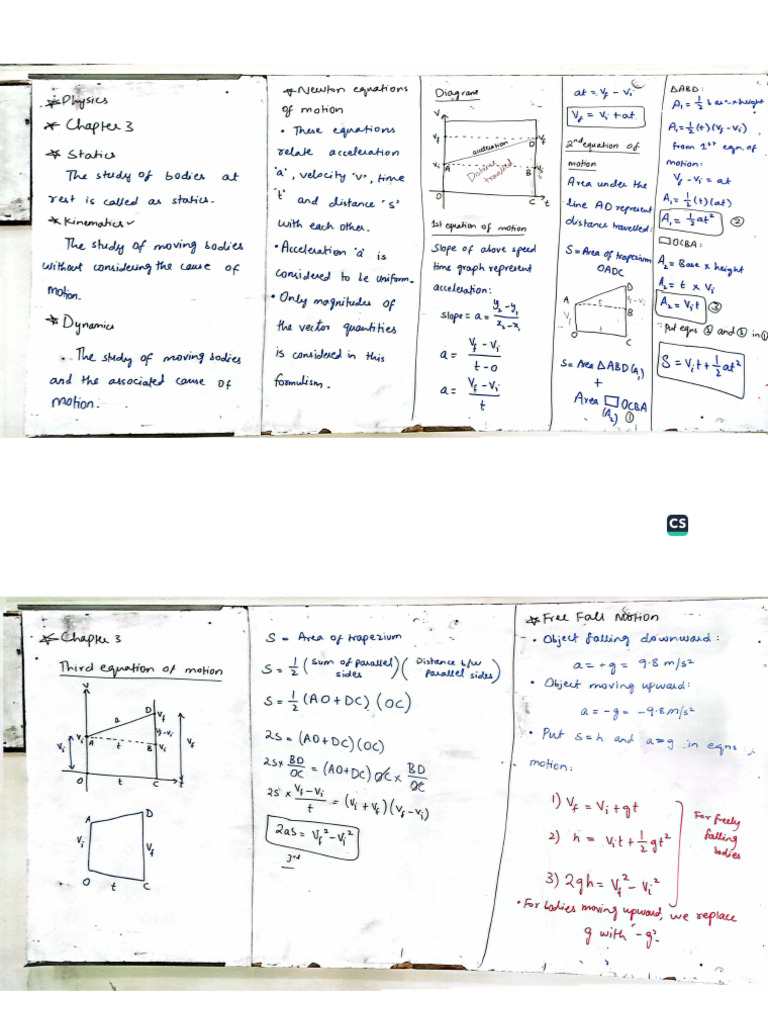 * Physics
* Chapter 3
* Statics
The study of bodies at
rest is called as statics.
* Kinematics
The study of moving bodies
without considering the cause of
motion.
* Dynamics
The study of moving bodies
and the associated cause of
motion.
* Newton equations
of motion
• These equations
relate acceleration
'a', velocity "v", time
't' and distance 's'
with each other.
• Acceleration 'a' is
considered to be uniform.
• Only magnitudes of
the vector quantities
is considered in this
formulism.
Diagram
V
Vf D Vf
acceleration
Vi A B Vi
Distance
travelled
O C t
1st equation of motion
Slope of above speed
time graph represent
acceleration:
slope = a = y2-y1 / x2-x1
a = Vf-Vi / t-0
a = Vf-Vi / t
at = Vf - Vi
Vf = Vi + at
2nd equation of
motion
Area under the
line AD represent
distance travelled:
S = Area of trapezium
OADC
D
A Vf-Vi
B
Vi t
O C
S = Area △ABD (A1)
+
Area □ OCBA
(A2) ①
△ABD:
A1 = 1/2 base × height
A1 = 1/2 (t)(Vf-Vi)
from 1st eqn. of
motion:
Vf - Vi = at
A1 = 1/2 (t)(at)
A1 = 1/2 at² ②
□OCBA:
A2 = Base × height
A2 = t × Vi
A2 = Vit ③
Put eqns ② and ③ in ①
S = Vit + 1/2 at²
CS
* Chapter 3
Third equation of motion
V
D Vf
a Vf-Vi
Vi Vi A t B Vi Vf
O t C t
A D
Vi Vf
O t C
S = Area of trapezium
S = 1/2 (Sum of parallel sides) (Distance b/w parallel sides)
S = 1/2 (AO+DC) (OC)
2S = (AO+DC)(OC)
2S × BD/OC = (AO+DC) OC × BD/OC
2S × Vf-Vi / t = (Vi+Vf)(Vf-Vi)
2as = Vf² - Vi²
3rd
* Free Fall Motion
• Object falling downward:
a = +g = 9.8 m/s²
• Object moving upward:
a = -g = -9.8 m/s²
• Put s=h and a=g in eqns
motion:
1) Vf = Vi + gt
2) h = Vit + 1/2 gt²
3) 2gh = Vf² - Vi²
For freely
falling
bodies
• For bodies moving upward, we replace
g with '-g'.